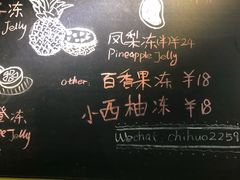 冻
Jelly
凤梨冻(半)¥24
Pineapple Jelly
other: 百香果冻 ¥18
小西柚冻 ¥18
橙冻
Jelly
Wechat chihuo2259